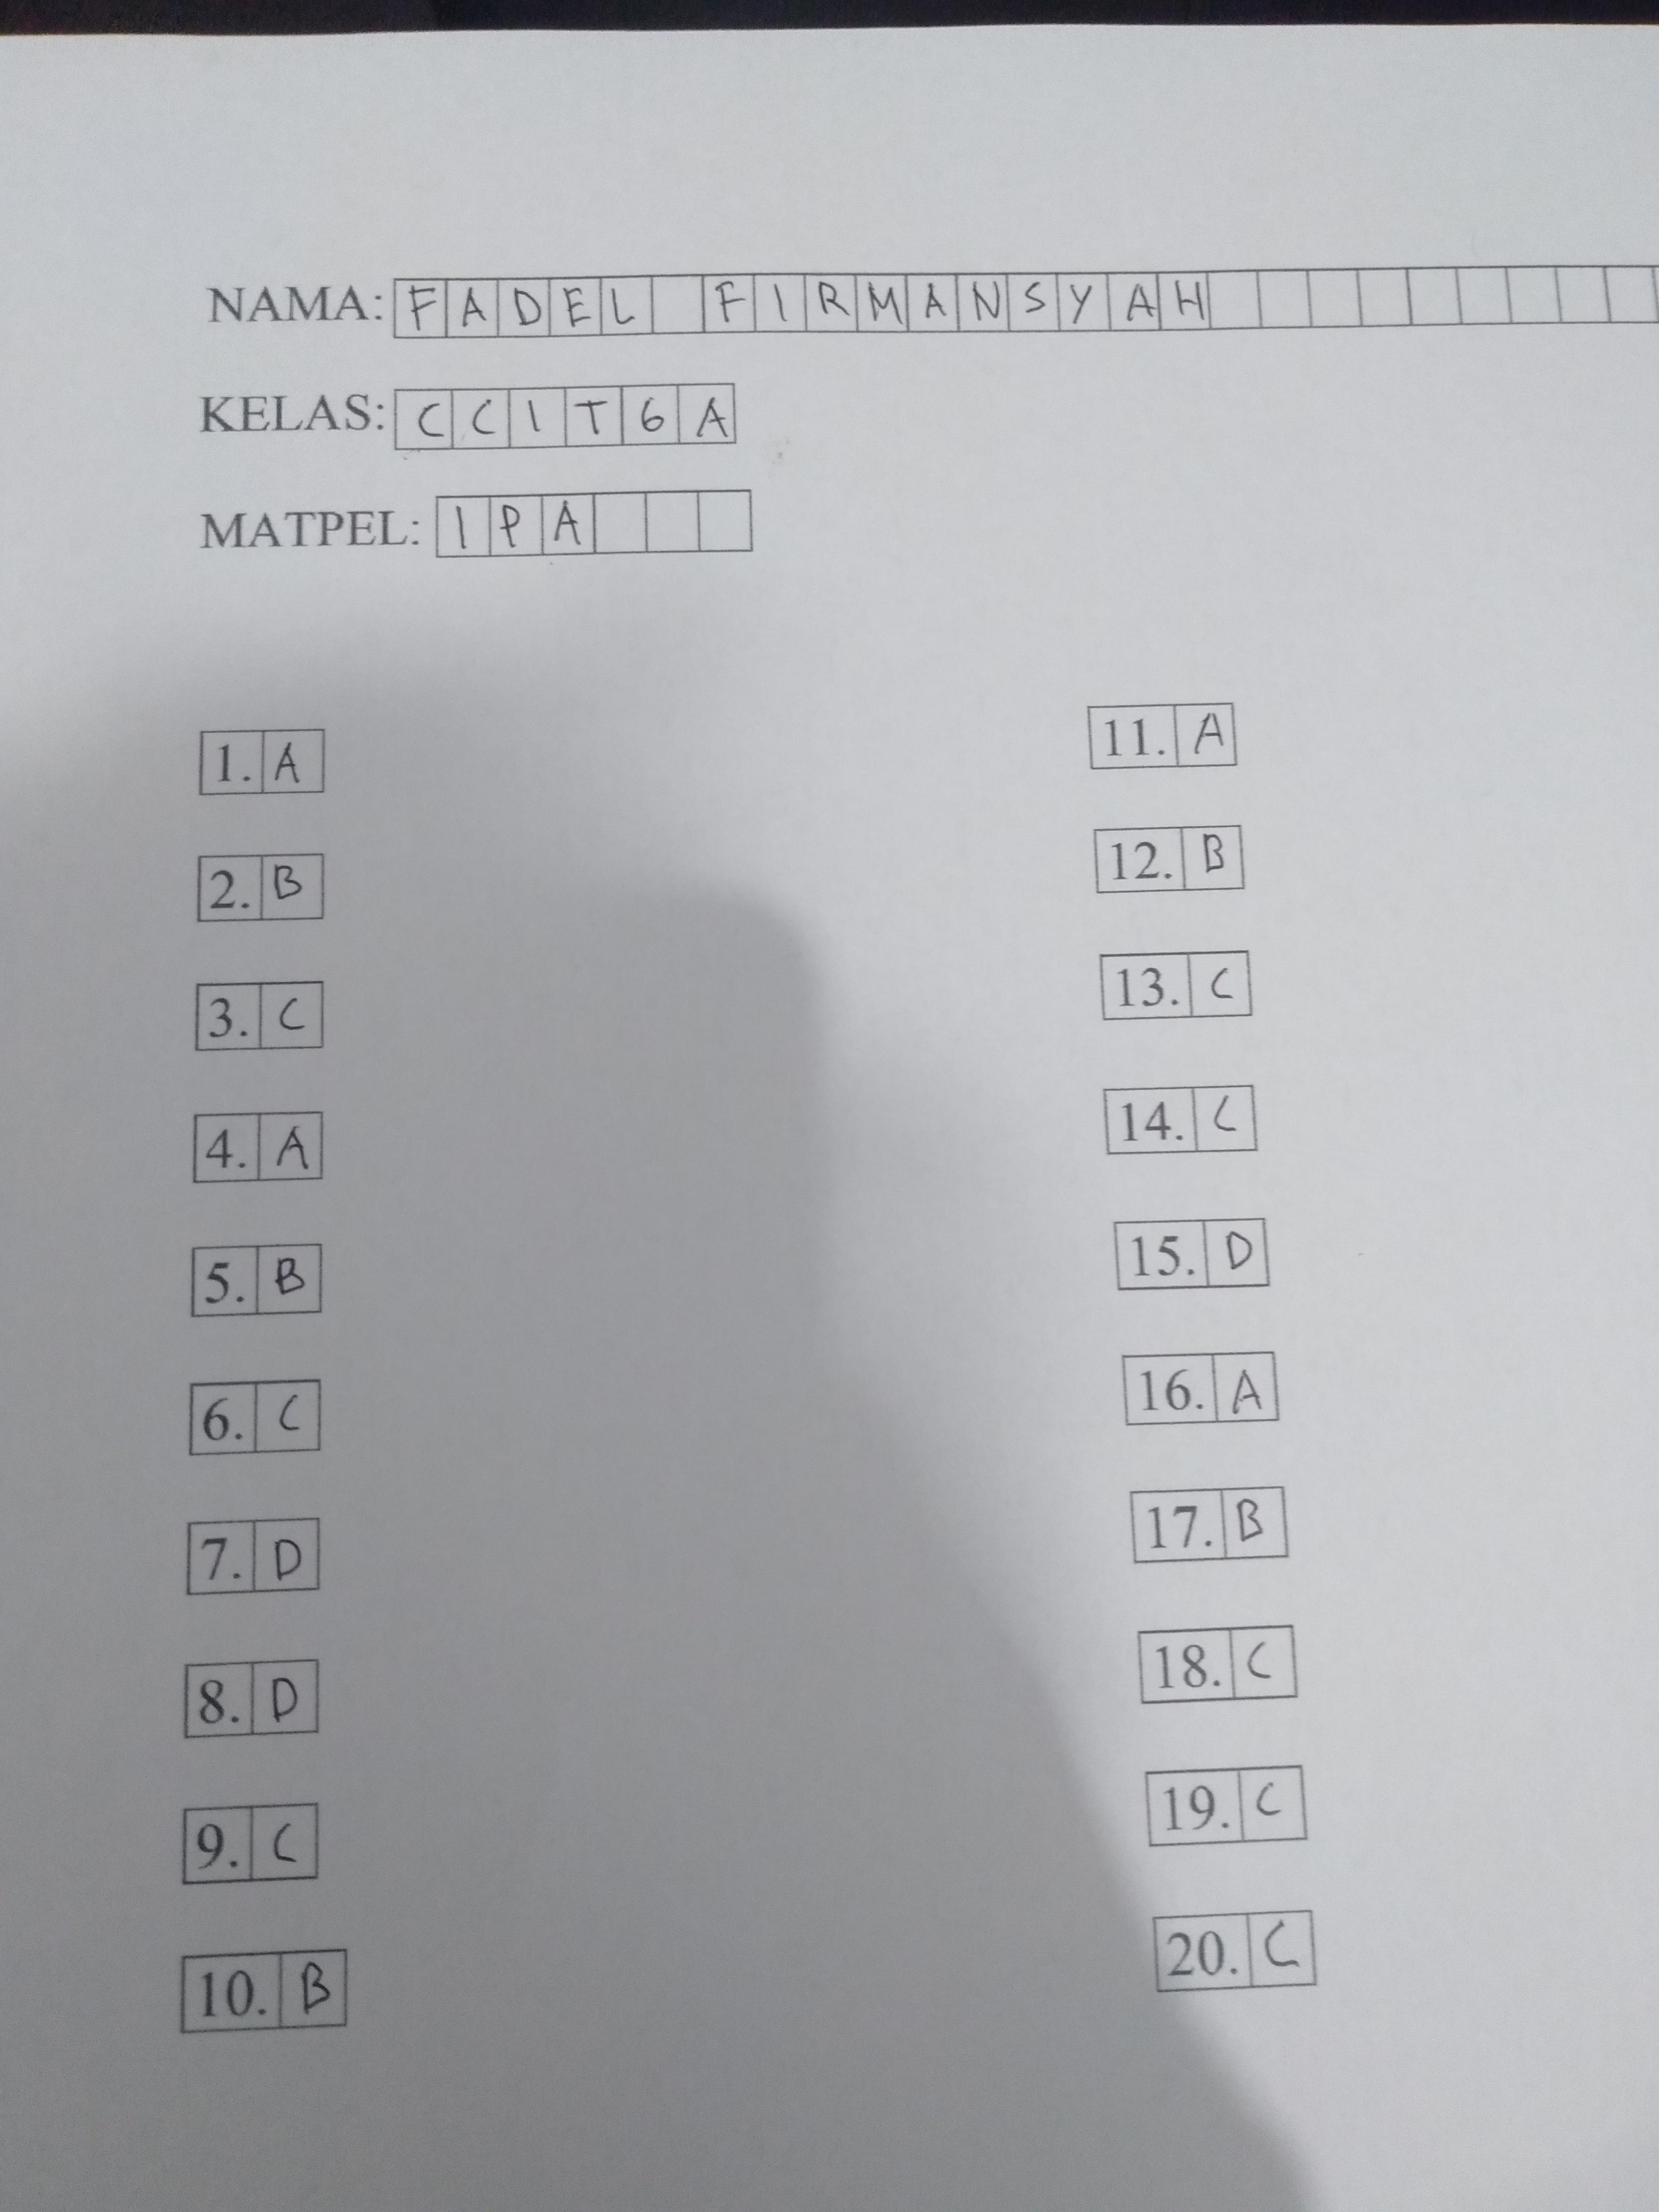 NAMA: FADEL FIRMANSYAH
KELAS: CCIT6A
MATPEL: IPA
1. A
2. B
3. C
4. A
5. B
6. C
7. D
8. D
9. C
10. B
11. A
12. B
13. C
14. C
15. D
16. A
17. B
18. C
19. C
20. C